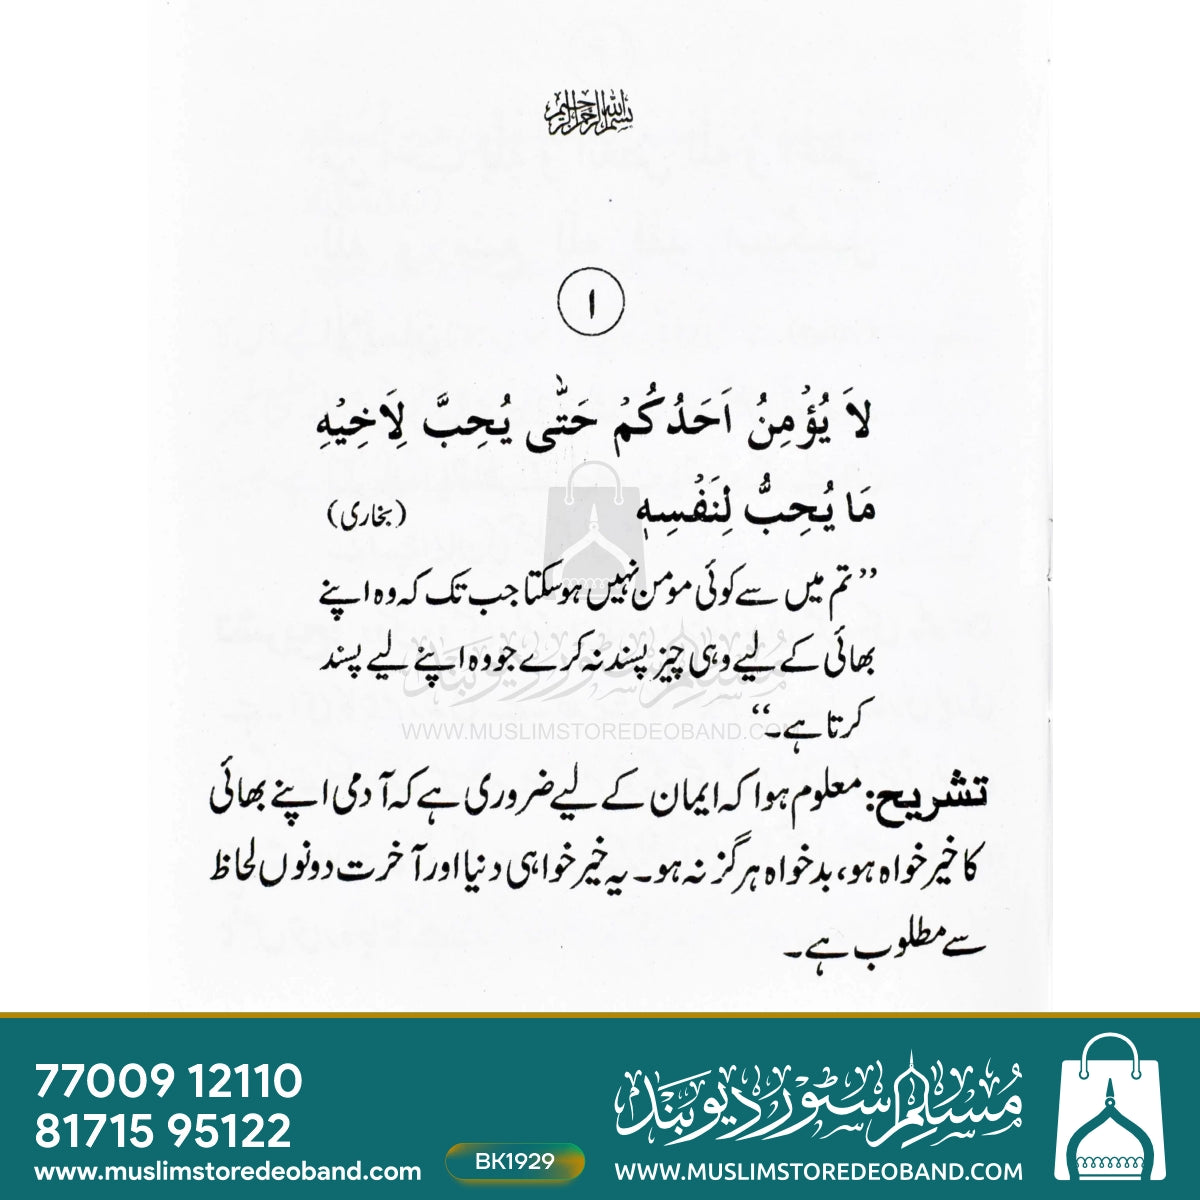 بسم الله الرحمن الرحيم
۱
لاَ يُؤْمِنُ اَحَدُكُمْ حَتّٰى يُحِبَّ لِاَخِيْهِ
مَا يُحِبُّ لِنَفْسِهٖ (بخاری)
”تم میں سے کوئی مومن نہیں ہوسکتا جب تک کہ وہ اپنے
بھائی کے لیے وہی چیز پسند نہ کرے جو وہ اپنے لیے پسند
کرتا ہے۔“
تشریح: معلوم ہوا کہ ایمان کے لیے ضروری ہے کہ آدمی اپنے بھائی
کا خیر خواہ ہو، بدخواہ ہرگز نہ ہو۔ یہ خیر خواہی دنیا اور آخرت دونوں لحاظ
سے مطلوب ہے۔
مسلم سٹور دیوبند
WWW.MUSLIMSTOREDEOBAND.COM
77009 12110
81715 95122
www.muslimstoredeoband.com
BK1929
مسلم سٹور دیوبند
WWW.MUSLIMSTOREDEOBAND.COM